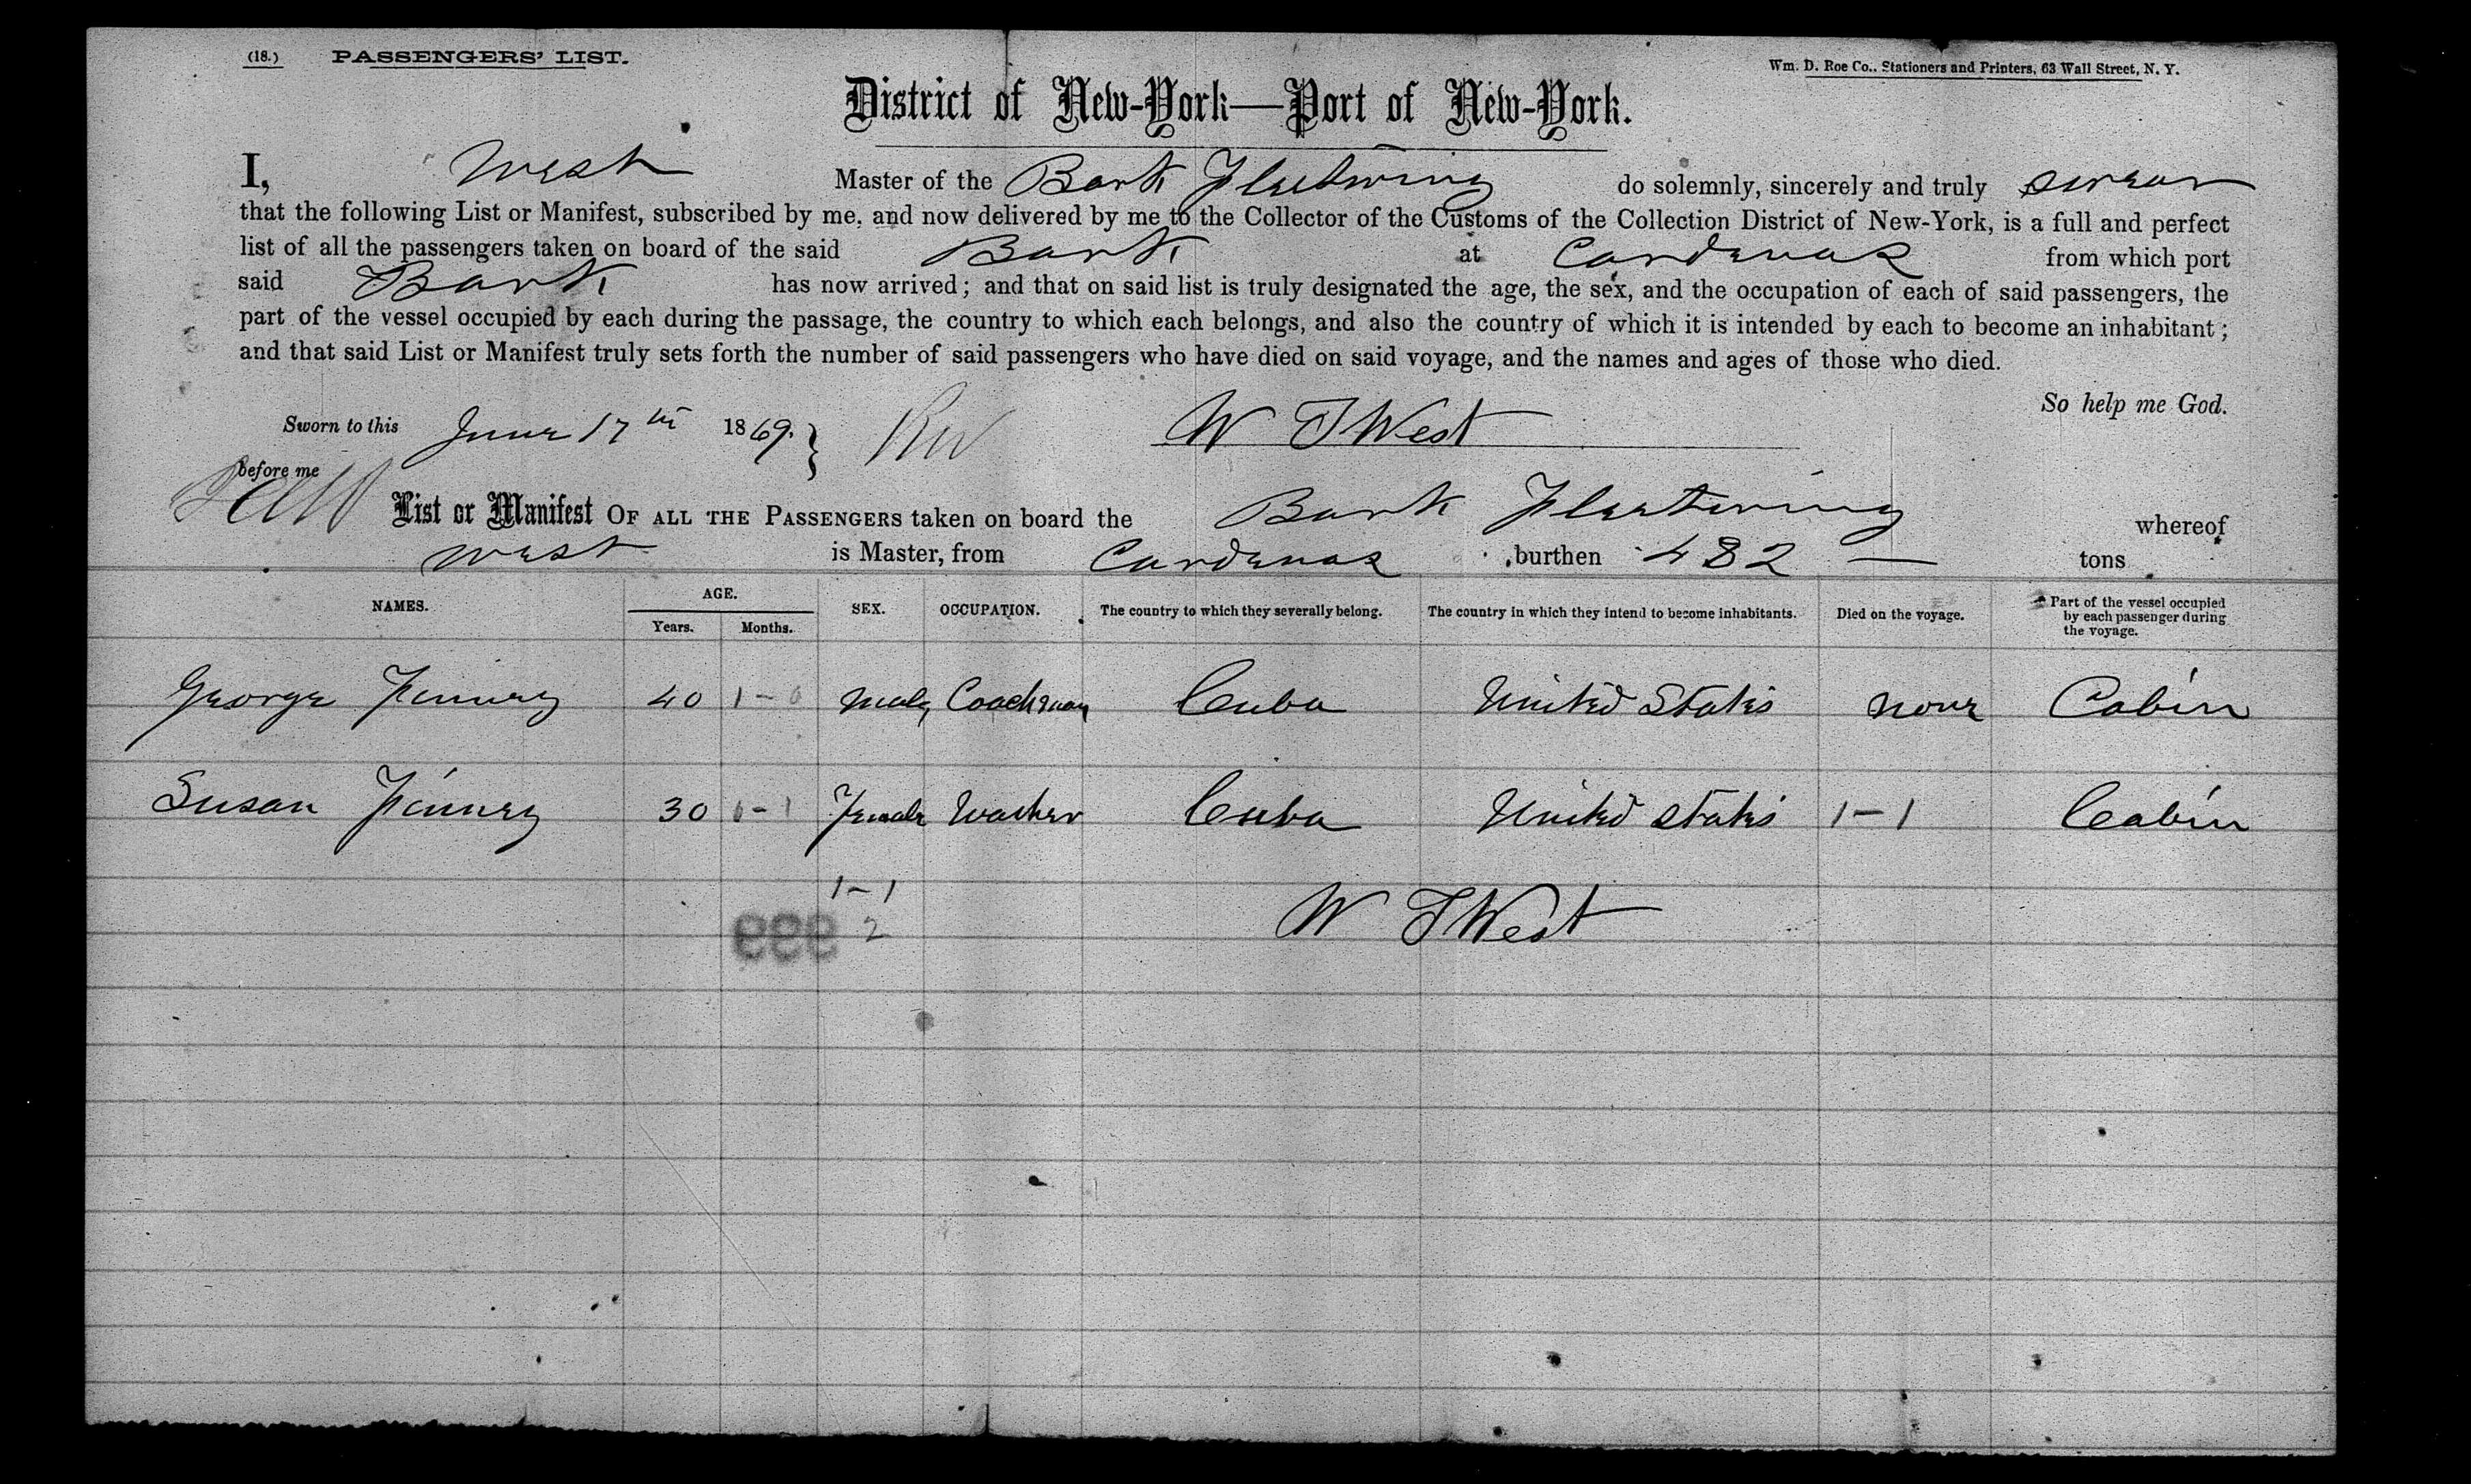 (18.) PASSENGERS' LIST.
Wm. D. Roe Co., Stationers and Printers, 63 Wall Street, N. Y.
District of New-York—Port of New-York.
I, West Master of the Bark Fleetwing do solemnly, sincerely and truly swear
that the following List or Manifest, subscribed by me, and now delivered by me to the Collector of the Customs of the Collection District of New-York, is a full and perfect
list of all the passengers taken on board of the said Bark at Cardenas from which port
said Bark has now arrived; and that on said list is truly designated the age, the sex, and the occupation of each of said passengers, the
part of the vessel occupied by each during the passage, the country to which each belongs, and also the country of which it is intended by each to become an inhabitant;
and that said List or Manifest truly sets forth the number of said passengers who have died on said voyage, and the names and ages of those who died.
So help me God.
Sworn to this June 17th 1869. W T West
before me
List or Manifest OF ALL THE PASSENGERS taken on board the Bark Fleetwing whereof
West is Master, from Cardenas, burthen 482 — tons
NAMES. AGE. Years. Months. SEX. OCCUPATION. The country to which they severally belong. The country in which they intend to become inhabitants. Died on the voyage. Part of the vessel occupied by each passenger during the voyage.
George Finney 40 1-0 Male Coachman Cuba United States none Cabin
Susan Finney 30 0-1 Female Washer Cuba United States 1-1 Cabin
1-1
2
W T West